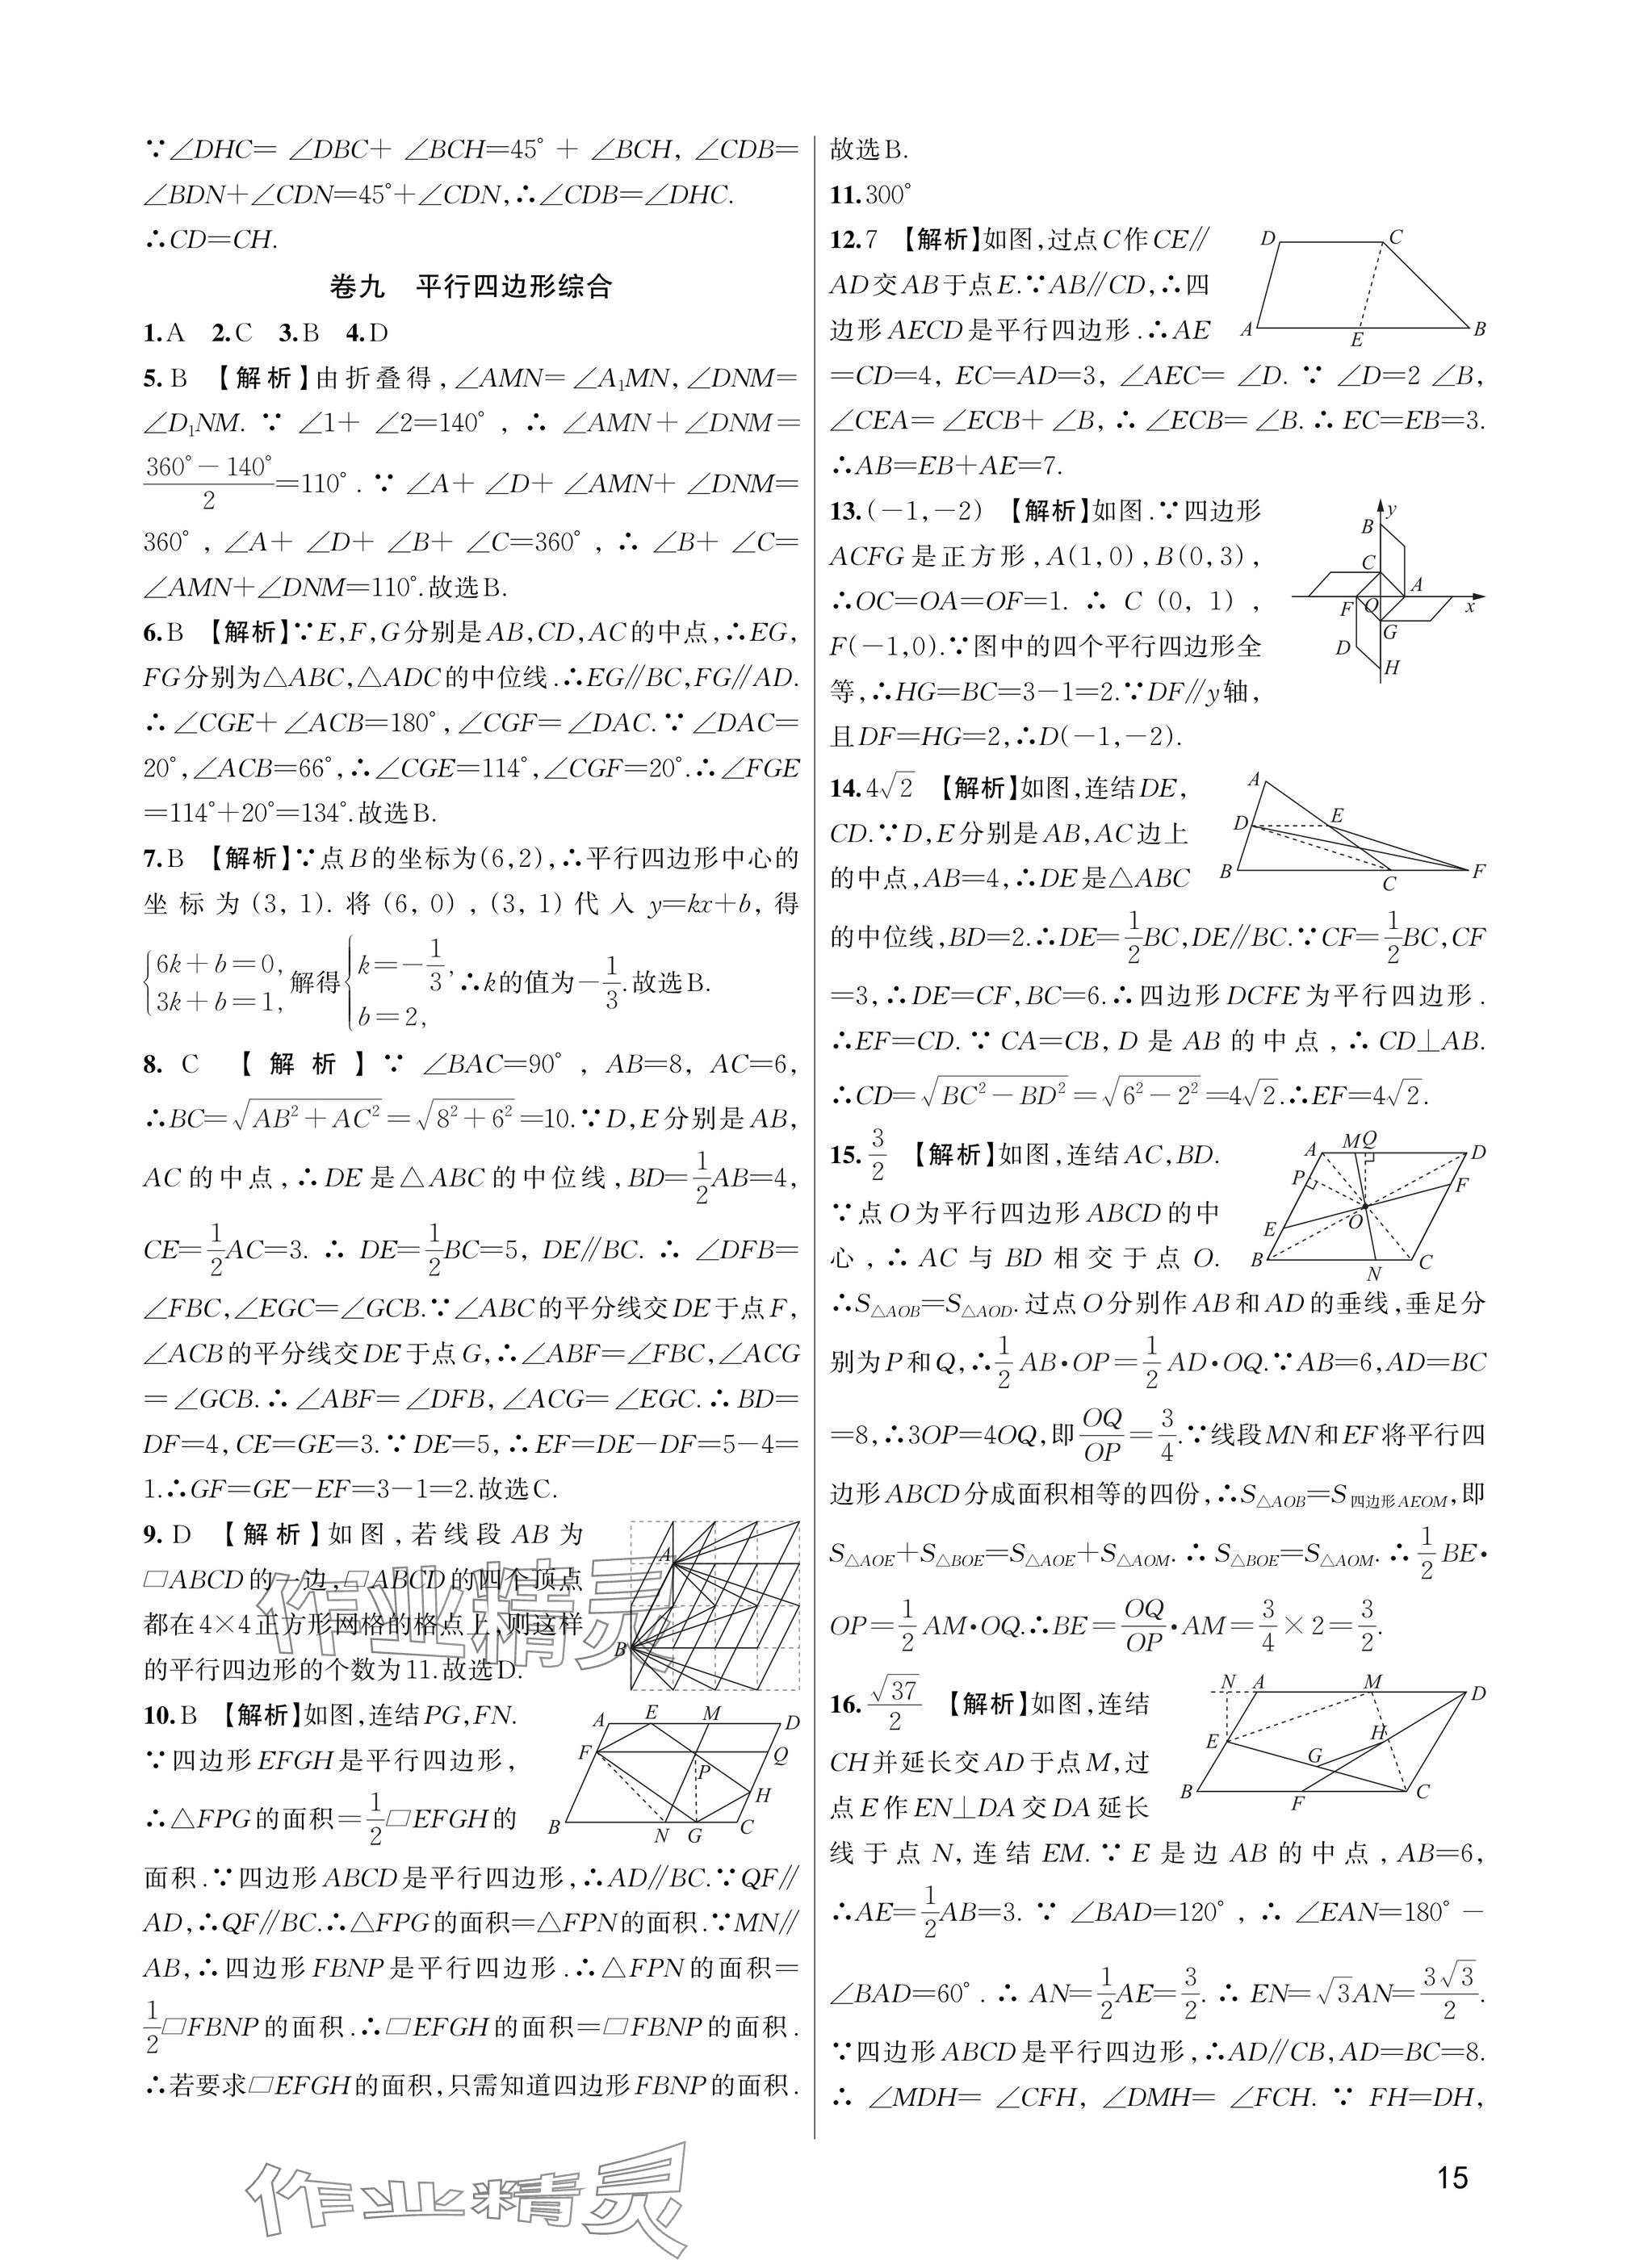 ∵∠DHC= ∠DBC+ ∠BCH=45° + ∠BCH, ∠CDB=
∠BDN+∠CDN=45°+∠CDN,∴∠CDB=∠DHC.
∴CD=CH.
卷九 平行四边形综合
1.A 2.C 3.B 4.D
5.B 【解析】由折叠得,∠AMN=∠A₁MN,∠DNM=
∠D₁NM. ∵ ∠1+ ∠2=140° , ∴ ∠AMN+∠DNM=
(360°-140°)/2=110°.∵ ∠A+ ∠D+ ∠AMN+ ∠DNM=
360° , ∠A+ ∠D+ ∠B+ ∠C=360° , ∴ ∠B+ ∠C=
∠AMN+∠DNM=110°.故选B.
6.B 【解析】∵E,F,G分别是AB,CD,AC的中点,∴EG,
FG分别为△ABC,△ADC的中位线.∴EG∥BC,FG∥AD.
∴ ∠CGE+ ∠ACB=180°,∠CGF= ∠DAC.∵ ∠DAC=
20°,∠ACB=66°,∴∠CGE=114°,∠CGF=20°.∴∠FGE
=114°+20°=134°.故选B.
7.B 【解析】∵点B的坐标为(6,2),∴平行四边形中心的
坐标为(3, 1). 将(6, 0) , (3, 1)代入 y=kx+b, 得
{6k+b=0, 3k+b=1, 解得{k=-1/3, b=2, ∴k的值为-1/3.故选B.
8. C 【解析】∵ ∠BAC=90° , AB=8, AC=6,
∴BC=√(AB²+AC²)=√(8²+6²)=10.∵D,E分别是AB,
AC的中点,∴DE是△ABC的中位线,BD=1/2AB=4,
CE=1/2AC=3. ∴ DE=1/2BC=5, DE∥BC. ∴ ∠DFB=
∠FBC,∠EGC=∠GCB.∵∠ABC的平分线交DE于点F,
∠ACB的平分线交DE于点G,∴∠ABF=∠FBC,∠ACG
=∠GCB.∴ ∠ABF=∠DFB,∠ACG=∠EGC.∴BD=
DF=4,CE=GE=3.∵DE=5,∴EF=DE-DF=5-4=
1.∴GF=GE-EF=3-1=2.故选C.
9. D 【解析】如图,若线段AB为
▱ABCD的一边,▱ABCD的四个顶点
都在4×4正方形网格的格点上,则这样
的平行四边形的个数为11.故选D.
A
B
10.B 【解析】如图,连结PG,FN.
∵四边形EFGH是平行四边形,
∴△FPG的面积=1/2▱EFGH的
A E M D
F Q
P
H
B N G C
面积.∵四边形ABCD是平行四边形,∴AD∥BC.∵QF∥
AD,∴QF∥BC.∴△FPG的面积=△FPN的面积.∵MN∥
AB,∴四边形FBNP是平行四边形.∴△FPN的面积=
1/2▱FBNP的面积.∴▱EFGH的面积=▱FBNP的面积.
∴若要求▱EFGH的面积,只需知道四边形FBNP的面积.
故选B.
11.300°
12.7 【解析】如图,过点C作CE∥
AD交AB于点E.∵AB∥CD,∴四
边形AECD是平行四边形.∴AE
D C
A E B
=CD=4, EC=AD=3, ∠AEC= ∠D. ∵ ∠D=2 ∠B,
∠CEA= ∠ECB+ ∠B, ∴ ∠ECB= ∠B. ∴ EC=EB=3.
∴AB=EB+AE=7.
13.(-1,-2) 【解析】如图.∵四边形
ACFG是正方形,A(1,0),B(0,3),
∴OC=OA=OF=1. ∴ C (0, 1) ,
F(-1,0).∵图中的四个平行四边形全
等,∴HG=BC=3-1=2.∵DF∥y轴,
且DF=HG=2,∴D(-1,-2).
y
B
C
A
F O x
G
D
H
14.4√2 【解析】如图,连结DE,
CD.∵D,E分别是AB,AC边上
的中点,AB=4,∴DE是△ABC
A
D E
B C F
的中位线,BD=2.∴DE=1/2BC,DE∥BC.∵CF=1/2BC,CF
=3,∴DE=CF,BC=6.∴四边形DCFE为平行四边形.
∴EF=CD.∵ CA=CB, D 是 AB 的中点, ∴ CD⊥AB.
∴CD=√(BC²-BD²)=√(6²-2²)=4√2.∴EF=4√2.
15.3/2 【解析】如图,连结AC,BD.
∵点O为平行四边形ABCD的中
心, ∴ AC 与 BD 相交于点 O.
A M Q D
P F
E O
B N C
∴S△AOB=S△AOD.过点O分别作AB和AD的垂线,垂足分
别为P和Q,∴1/2 AB·OP=1/2 AD·OQ.∵AB=6,AD=BC
=8,∴3OP=4OQ,即OQ/OP=3/4.∵线段MN和EF将平行四
边形ABCD分成面积相等的四份,∴S△AOB=S四边形AEOM,即
S△AOE+S△BOE=S△AOE+S△AOM. ∴ S△BOE=S△AOM. ∴ 1/2 BE·
OP=1/2 AM·OQ.∴BE=OQ/OP·AM=3/4×2=3/2.
16.√37/2 【解析】如图,连结
CH并延长交AD于点M,过
点E作EN⊥DA交DA延长
N A M D
E H
G
B F C
线于点N,连结EM.∵E是边AB的中点,AB=6,
∴AE=1/2AB=3. ∵ ∠BAD=120° , ∴ ∠EAN=180° -
∠BAD=60° . ∴ AN=1/2AE=3/2. ∴ EN=√3AN=3√3/2.
∵四边形ABCD是平行四边形,∴AD∥CB,AD=BC=8.
∴ ∠MDH= ∠CFH, ∠DMH= ∠FCH. ∵ FH=DH,
作业精灵
作业精灵
15